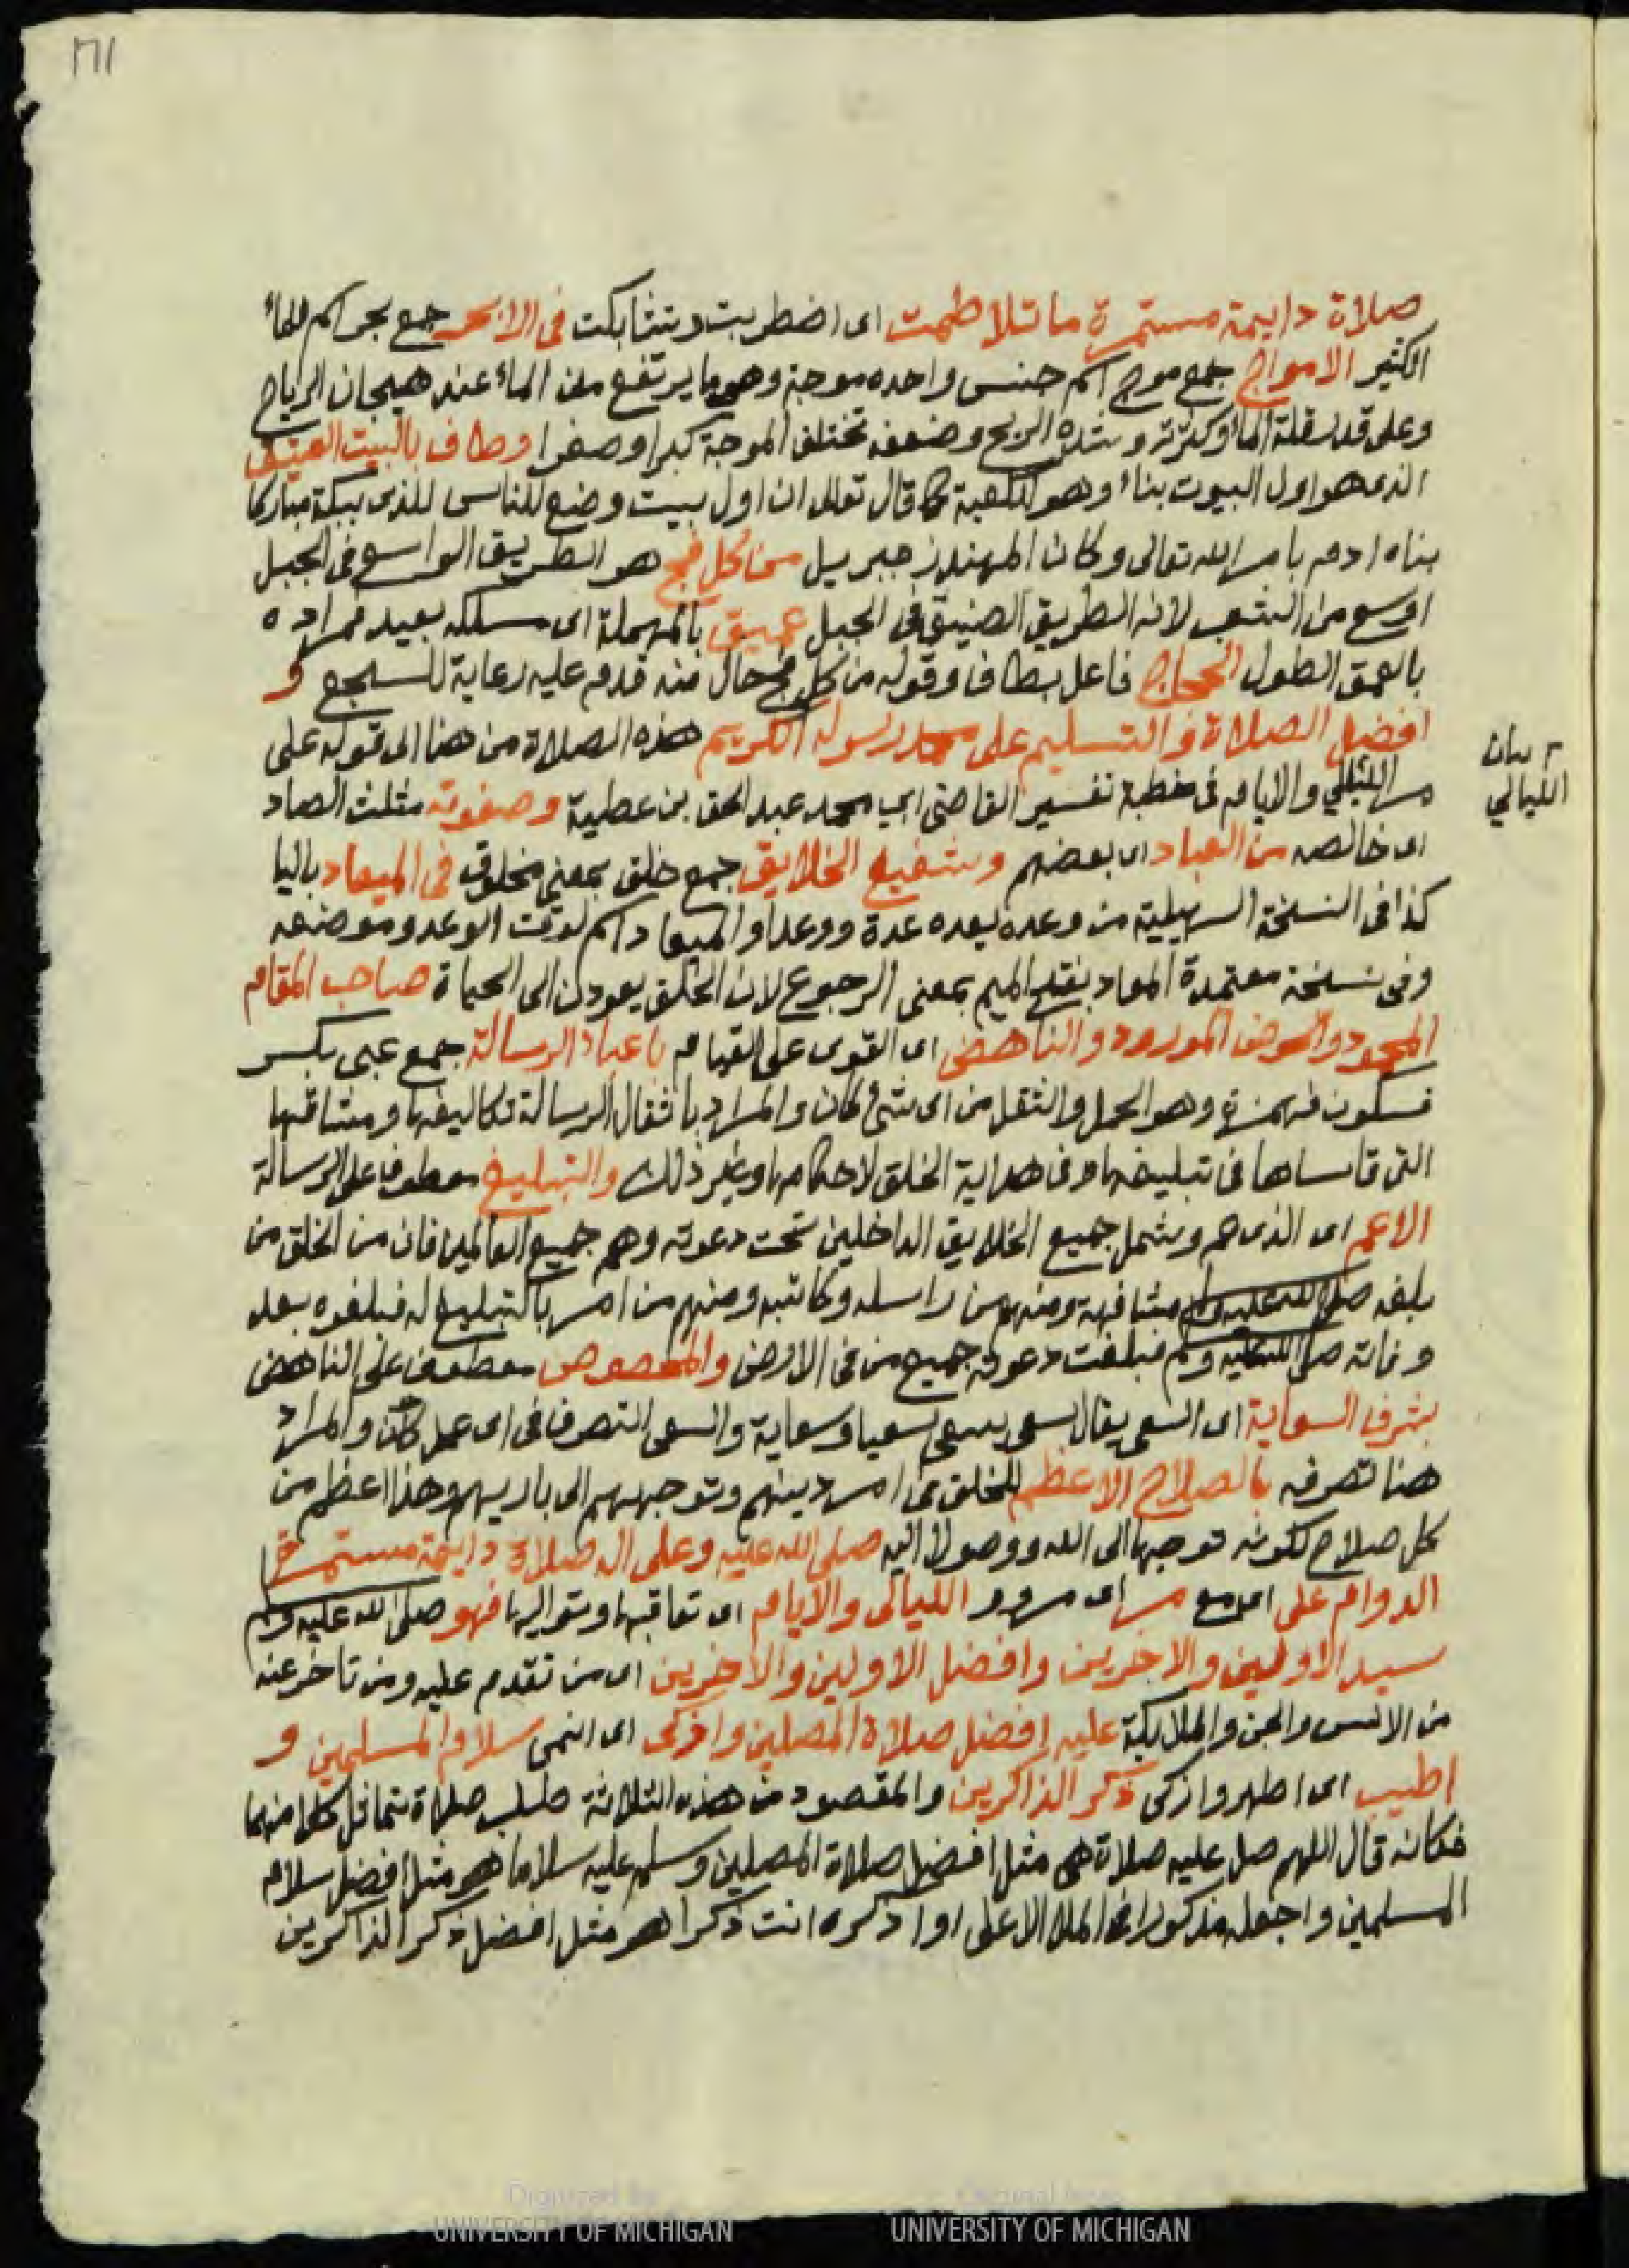 ١٦١
صلاة دايمة مستمرة ما تلاطمت اى اضطربت وتشابكت فى الابحر جمع بحر اسم للماء
الكثير الامواج جمع موج اسم جنس واحده موجة وهو ما يرتفع من الماء عند هيجان الرياح
وعلى قدر قلة الماء وكثرته وشدة الريح وضعفه تختلف الموجة كبرا وصغرا وطاف بالبيت العتيق
الذى هو اول البيوت بناء وهو الكعبة كما قال تعالى ان اول بيت وضع للناس للذى ببكة مباركا
بناه ادم بامر الله تعالى وكان المهندز جبريل من كل فج هو الطريق الواسع فى الجبل
اوسع من الشعب لانه الطريق الضيق فى الجبل عميق بالمهملة اى مسلكه بعيد فمراده
بالعمق الطول الحجاج فاعل بطاف وقوله من كل فج حال منه قدم عليه رعاية للسجع و
افضل الصلاة والتسليم على محمد رسوله الكريم هذه الصلاة من هنا الى قوله على
مر الليالي والايام فى خطبة تفسير القاضى ابى محمد عبد الحق بن عطية وصفوته مثلث الصاد
بيان
الليالي
اى خالصه من العباد اى بعضهم وشفيع الخلايق جمع خلق بمعنى مخلوق فى الميعاد باليا
كذا فى النسخة السهيلية من وعده يعده عدة ووعدا والميعاد اسم لوقت الوعد وموضعه
وفى نسخة معتمدة المعاد بفتح الميم بمعنى الرجوع لان الخلق يعودون الى الحياة صاحب المقام
المحمود والحوض المورود والناهض اى القوى على القيام باعباء الرسالة جمع عبى بكسر
فسكون فهمزة وهو الحمل والثقل من اى شىء كان والمراد باثقال الرسالة تكاليفها ومشاقها
التى قاساها فى تبليغها وفى هداية الخلق لاحكامها وغير ذلك والتبليغ معطوف على الرسالة
الاعم اى الذى عم وشمل جميع الخلايق الداخلين تحت دعوته وهم جميع العالمين فان من الخلق من
بلغه صلى الله عليه وسلم مشافهة ومنهم من راسله وكاتبه ومنهم من امر بالتبليغ له فبلغوه بعد
وفاته صلى الله عليه وسلم فبلغت دعوته جميع من فى الارض والمخصوص معطوف على الناهض
بشرف السعاية اى السعى يقال سعى يسعى سعيا وسعاية والسعى التصرف فى اى عمل كان والمراد
هنا تصرفه بالصلاح الاعظم للخلق فى امر دينهم وتوجههم الى باريهم وهذا اعظم من
كل صلاح لكونه توجها الى الله ووصولا اليه صلى الله عليه وعلى اله صلاة دايمة مستمرة
الدوام على اى مع مر اى مرور الليالى والايام اى تعاقبها وتواليها فهو صلى الله عليه وسلم
سيد الاولين والاخرين وافضل الاولين والاخرين اى من تقدم عليه ومن تاخر عنه
من الانس والجن والملايكة عليه افضل صلاة المصلين وازكى اى انمى سلام المسلمين و
اطيب اى اطهر وازكى ذكر الذاكرين والمقصود من هذه الثلاثة طلب صلاة تماثل كلا منها
فكانه قال اللهم صل عليه صلاة هى مثل افضل صلاة المصلين وسلم عليه سلاما هو مثل افضل سلام
المسلمين واجعله مذكورا فى الملا الاعلى اوا ذكره انت ذكرا هو مثل افضل ذكر الذاكرين
Digitized by
UNIVERSITY OF MICHIGAN
Original from
UNIVERSITY OF MICHIGAN